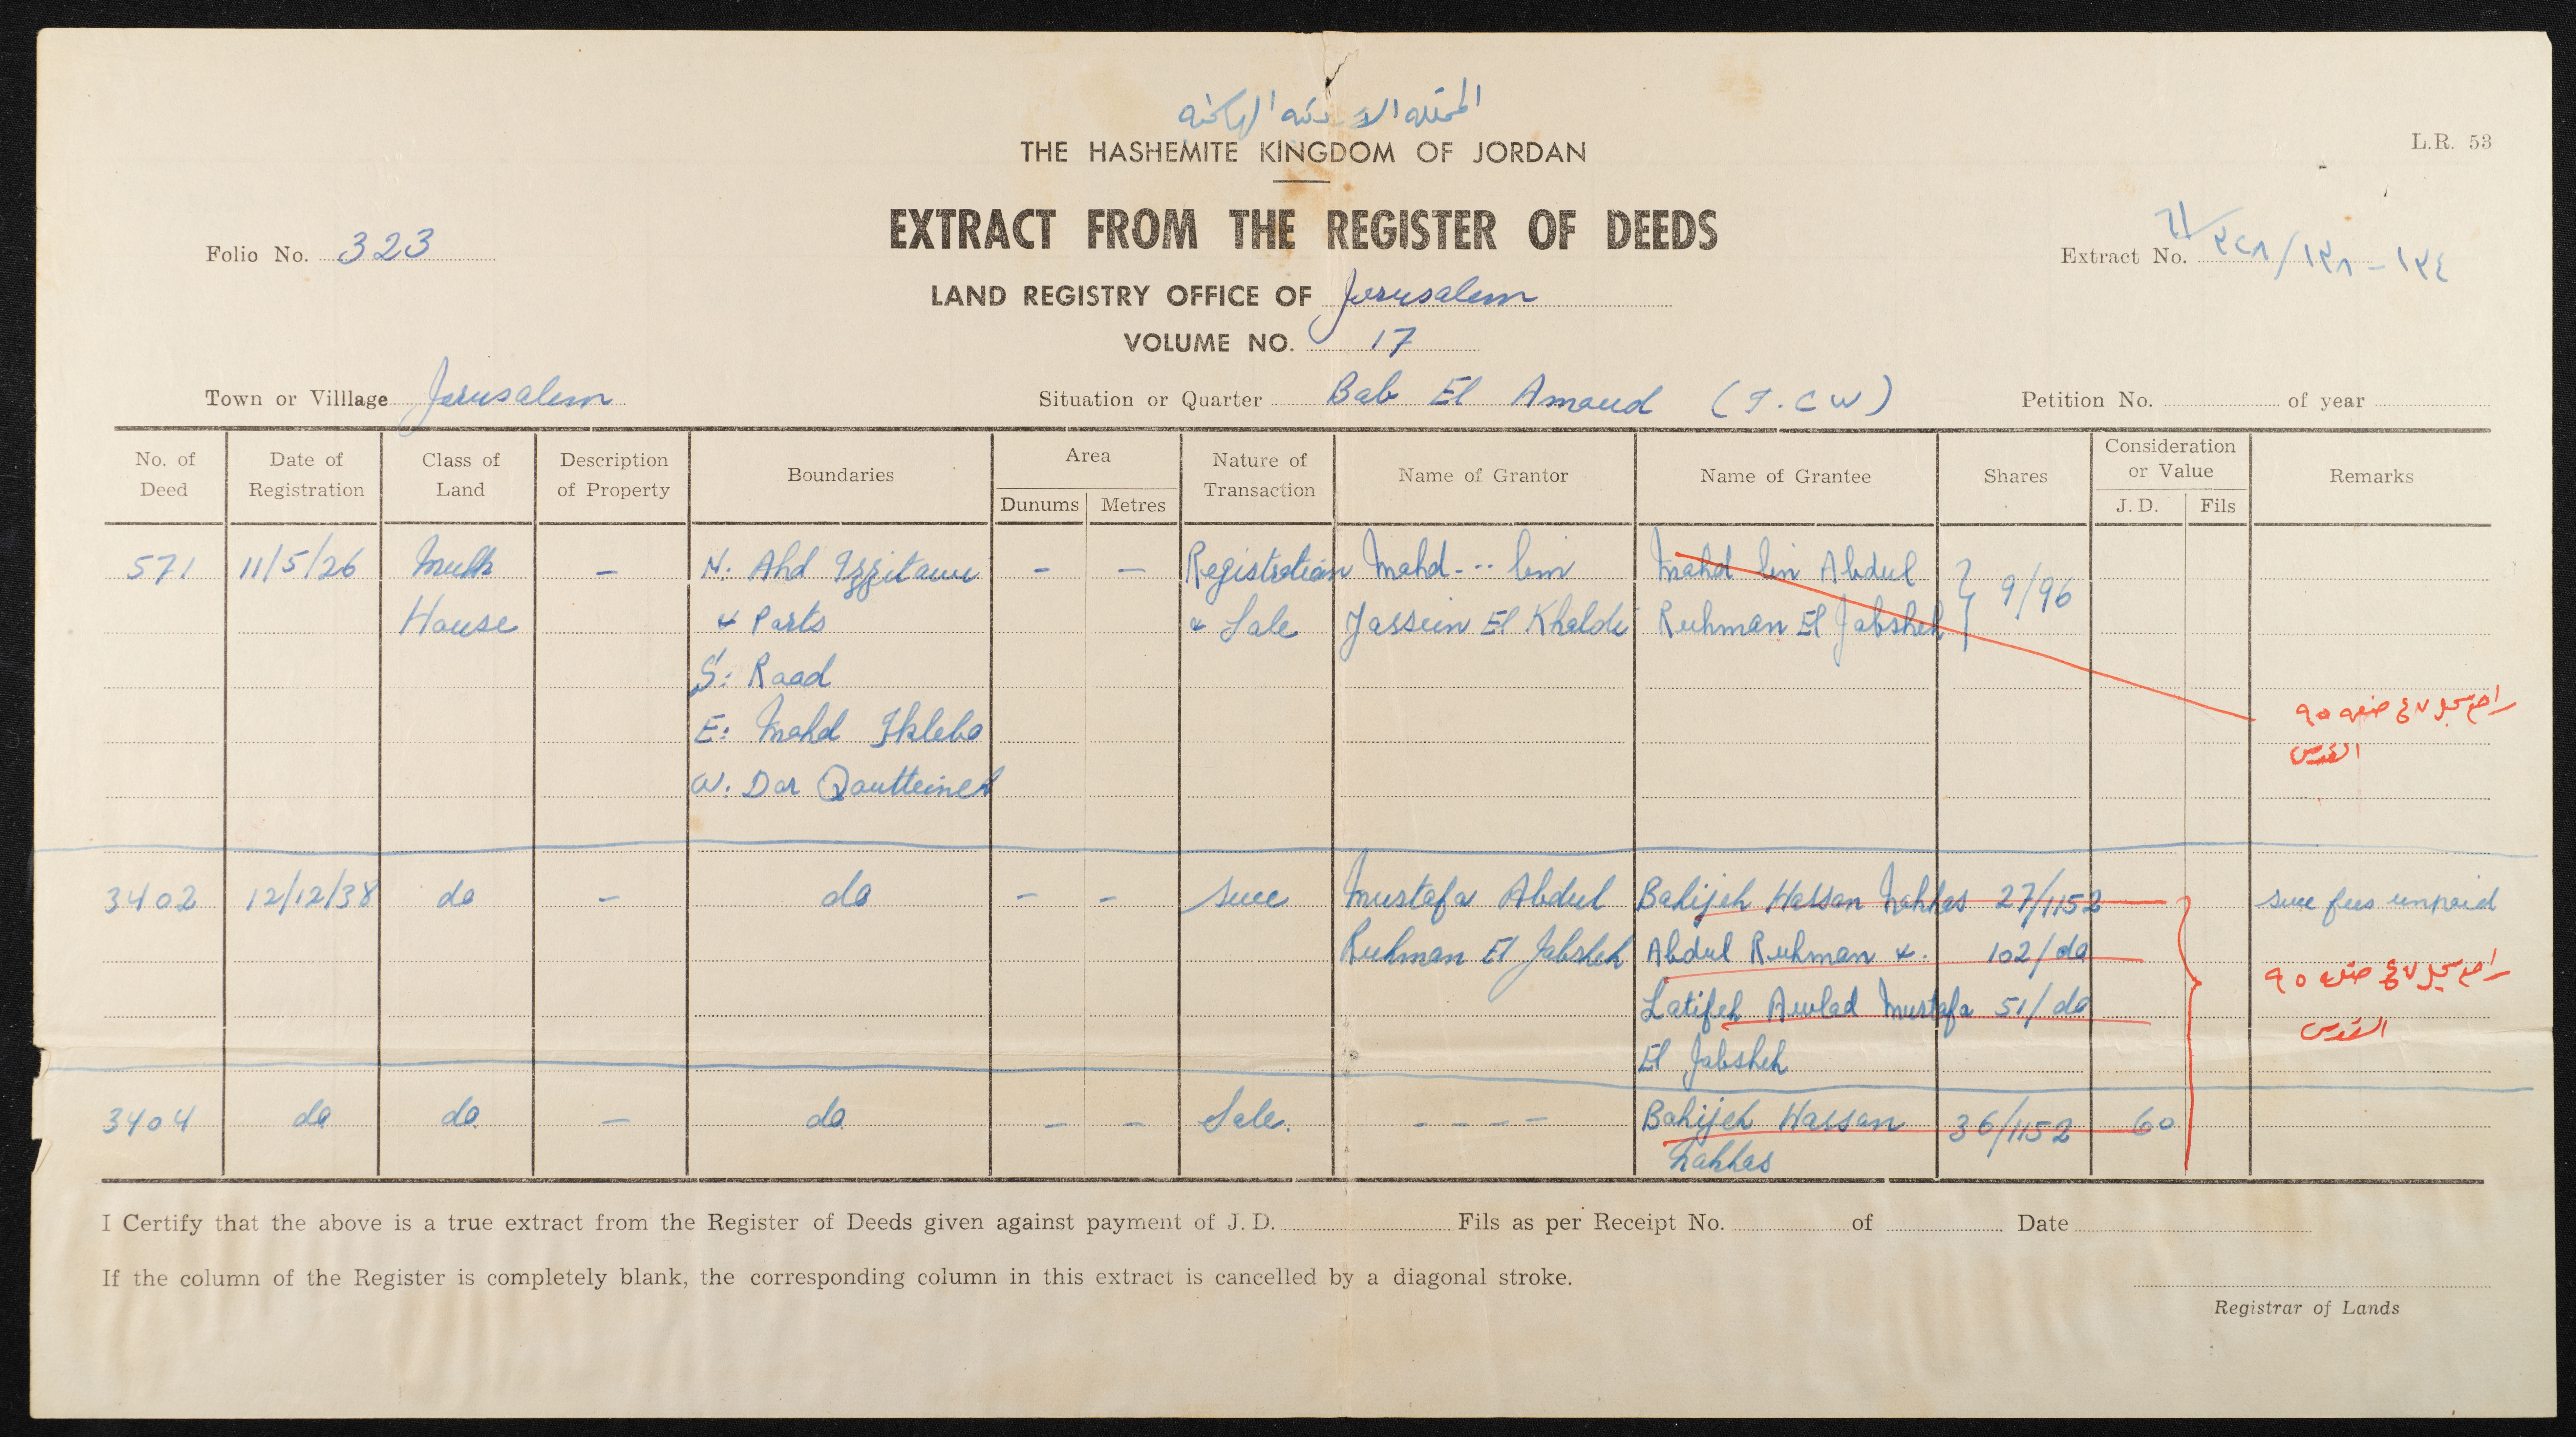 المملكة الاردنية الهاشمية
THE HASHEMITE KINGDOM OF JORDAN
L.R. 53
EXTRACT FROM THE REGISTER OF DEEDS
Folio No. 323
Extract No. ١٢٤ - ١٢٨ /
LAND REGISTRY OFFICE OF Jerusalem
VOLUME NO. 17
Town or Villlage Jerusalem
Situation or Quarter Bab El Amoud (I.C W)
Petition No. of year
No. of Deed Date of Registration Class of Land Description of Property Boundaries Area Dunums Metres Nature of Transaction Name of Grantor Name of Grantee Shares Consideration or Value J.D. Fils Remarks
571 11/5/26 Mulk - N. Ahd - - Registration Mohd --- bin Mohd bin Abdul 9/96
House & Parts & Sale Jassein El Khaldi Ruhman El Jabsheh
S: Raad
E: Mohd راجع سجل ٤٧ صفحه ٩٥
W. Dar Qoutteineh القدس
3402 12/12/38 do - do - - succ Mustafa Abdul Bahijeh Hassan Nahhas 27/1152 succ fees unpaid
Ruhman El Jabsheh Abdul Ruhman &. 102/do راجع سجل ٤٧ صفحه ٩٥
Latifeh Awlad Mustafa 51/do القدس
El Jabsheh
3404 do do - do - - Sale. - - - - Bahijeh Hassan 36/1152 60
Nahhas
I Certify that the above is a true extract from the Register of Deeds given against payment of J.D. Fils as per Receipt No. of Date
If the column of the Register is completely blank, the corresponding column in this extract is cancelled by a diagonal stroke.
Registrar of Lands